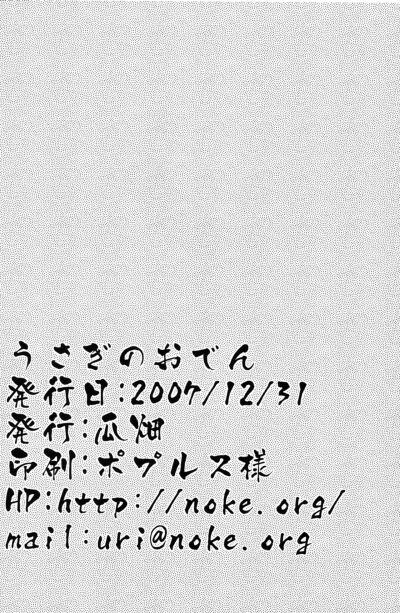 うさぎのおでん
発行日:2007/12/31
発行:瓜畑
印刷:ポプルス様
HP:http://noke.org/
mail:uri@noke.org